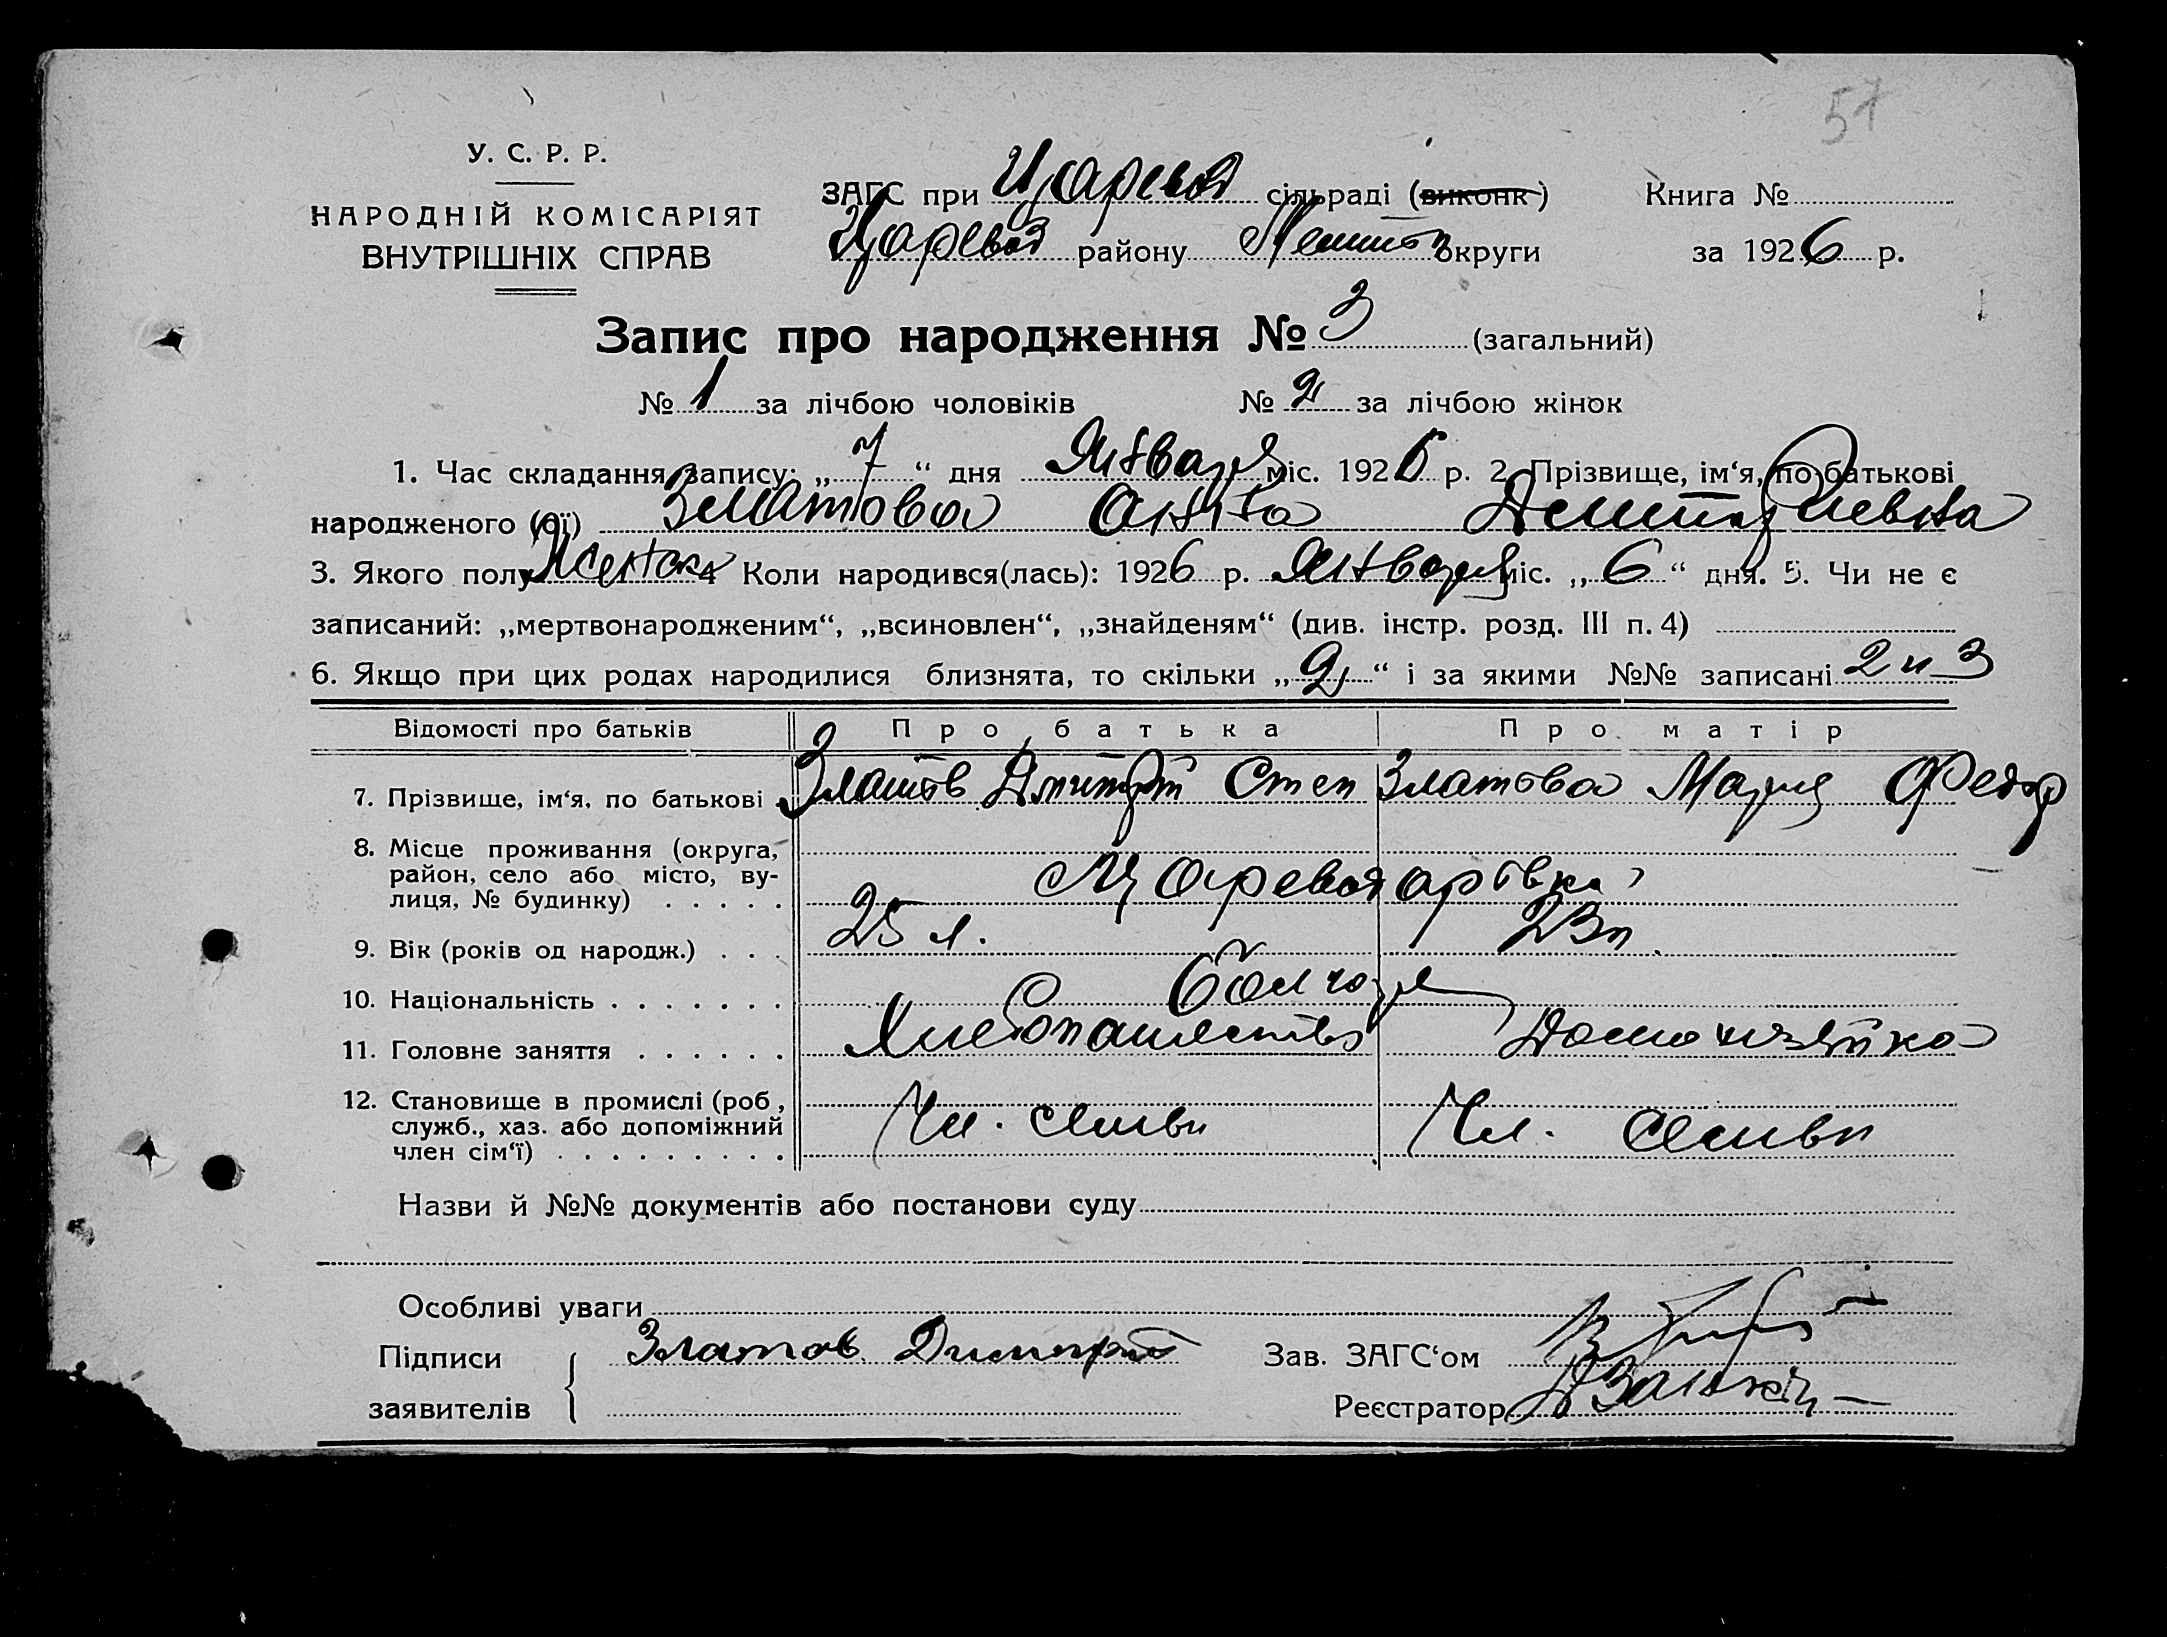 57
У. С. Р. Р.
НАРОДНІЙ КОМІСАРІЯТ
ВНУТРІШНІХ СПРАВ
ЗАГС при Царевод сільраді (виконк)
Царевод району Мелитоп округи
Книга №
за 1926 р.
Запис про народження № 3 (загальний)
№ 1 за лічбою чоловіків № 2 за лічбою жінок
1. Час складання запису: „7“ дня Января міс. 1926 р. 2. Прізвище, ім‘я, по батькові
народженого (ої) Златова Анна Дмитриевна
3. Якого полу Женск 4 Коли народився(лась): 1926 р. Января міс. „6“ дня. 5. Чи не є
записаний: „мертвонародженим“, „всиновлен“, „знайденям“ (див. інстр. розд. III п. 4)
6. Якщо при цих родах народилися близнята, то скільки „2“ і за якими №№ записані 2 и 3
Відомості про батьків Про батька Про матір
7. Прізвище, ім‘я, по батькові Златов Дмитрий Степ Златова Мария Федор
8. Місце проживання (округа,
район, село або місто, ву-
лиця, № будинку)
9. Вік (років од народж.) 25 л. 23 л.
10. Національність Болгаре
11. Головне заняття Хлебопашество Домохозяйка
12. Становище в промислі (роб.,
служб., хаз. або допоміжний
член сім‘ї) Чл. семьи Чл. семьи
Назви й №№ документів або постанови суду
Особливі уваги
Підписи
заявителів
Златов Димитрий
Зав. ЗАГС‘ом
Реєстратор